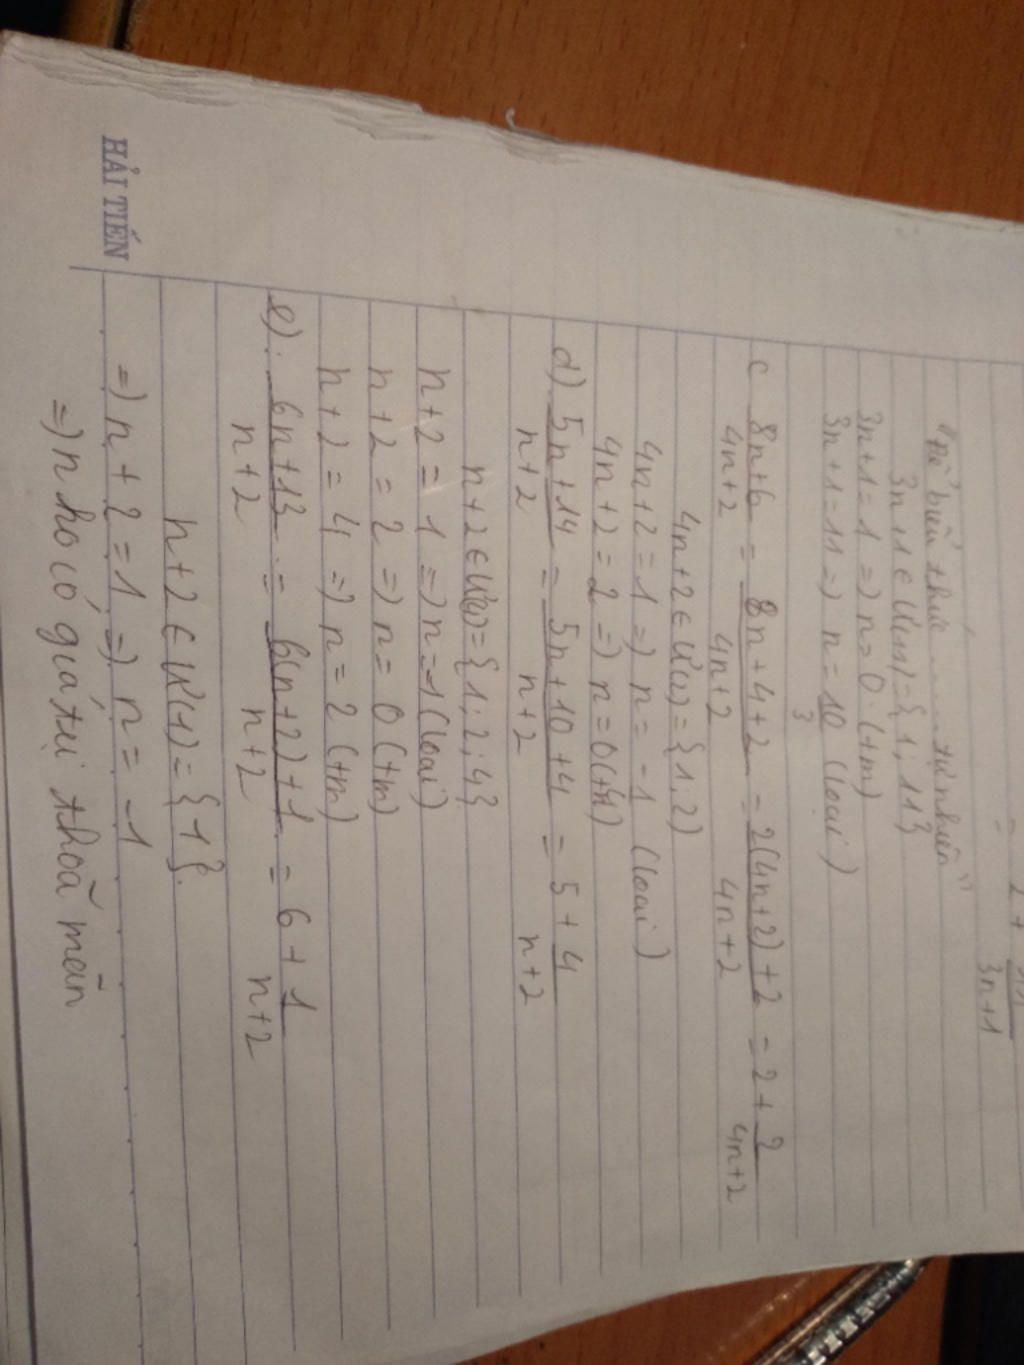 = 2 + 11/3n+1
"Để biểu thức ....... tự nhiên"
3n+1 ∈ Ư(11) = {1; 11}
3n+1 = 1 => n = 0 (tm)
3n+1 = 11 => n = 10/3 (loại)
c 8n+6/4n+2 = 8n+4+2/4n+2 = 2(4n+2)+2/4n+2 = 2 + 2/4n+2
4n+2 ∈ Ư(2) = {1,2)
4n+2 = 1 => n = -1 (loại)
4n+2 = 2 => n = 0 (tm)
d) 5n+14/n+2 = 5n+10+4/n+2 = 5 + 4/n+2
n+2 ∈ Ư(4) = {1; 2; 4}
n+2 = 1 => n = -1 (loại)
n+2 = 2 => n = 0 (tm)
n+2 = 4 => n = 2 (tm)
e). 6n+13/n+2 = 6(n+2)+1/n+2 = 6 + 1/n+2
n+2 ∈ Ư(1) = {1}.
=> n+2 = 1 => n = -1
=> n ko có giá trị thoã mãn
HẢI TIẾN